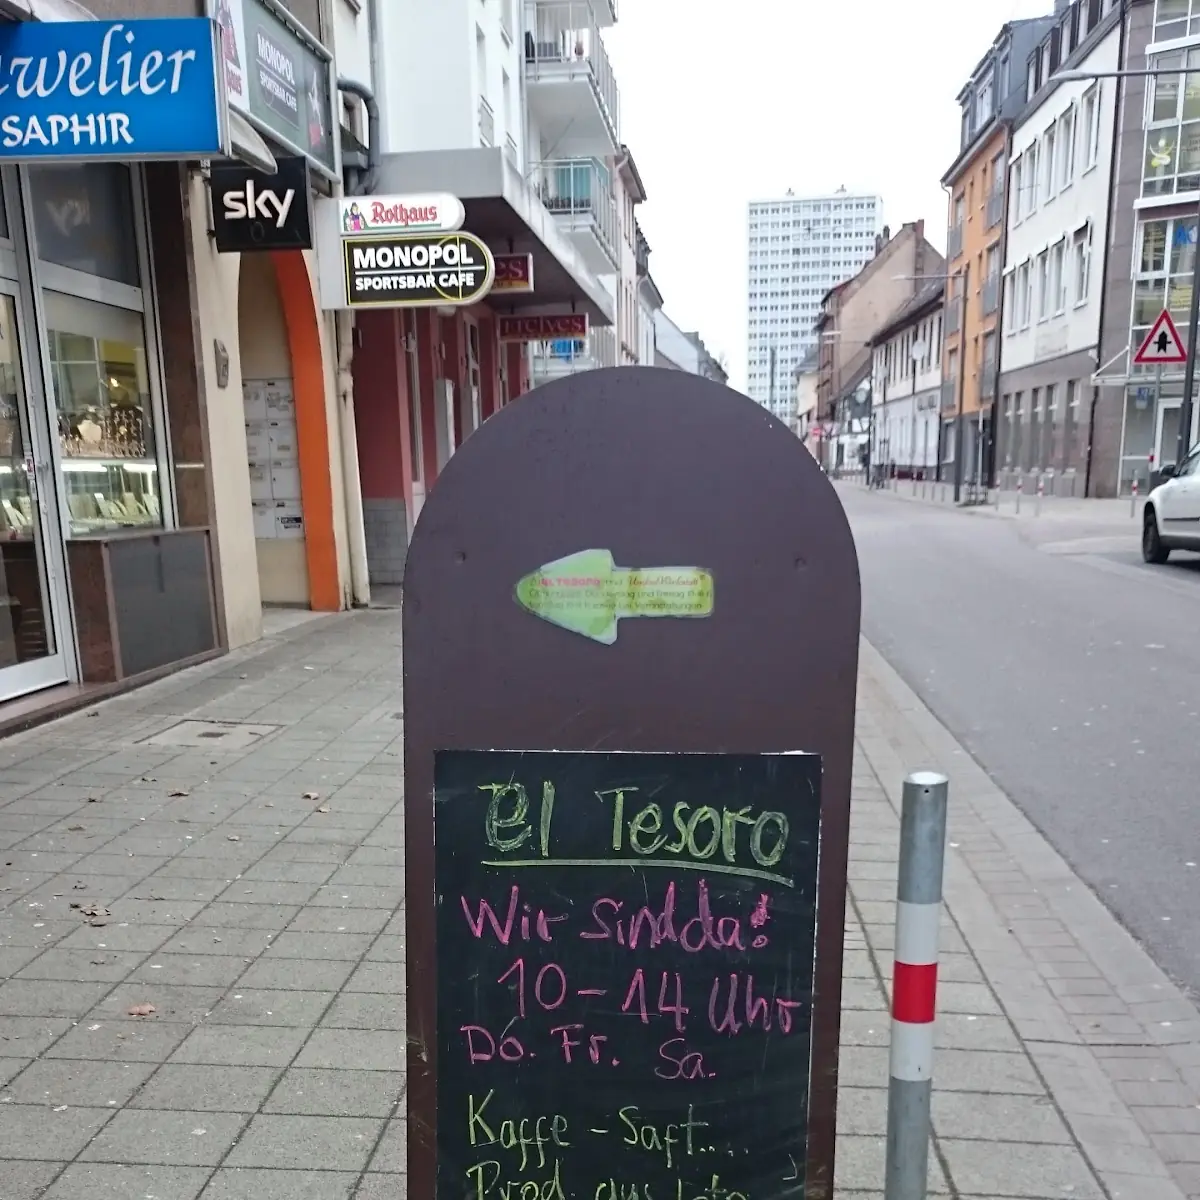 Juwelier
SAPHIR
MONOPOL
SPORTSBAR CAFE
sky
Rothaus
MONOPOL
SPORTSBAR CAFE
EL TESORO
und Freitag
El Tesoro
Wir sind da!
10-14 Uhr
Do. Fr. Sa.
Kaffe - Saft....
Prod. aus